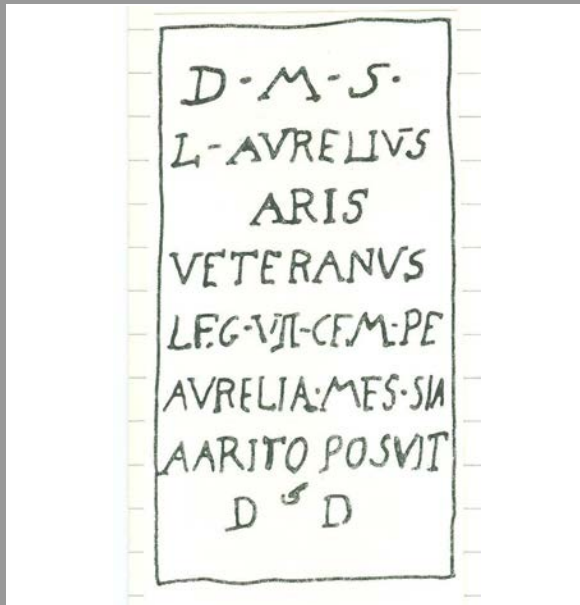 D·M·S·
L·AVRELIVS
ARIS
VETERANVS
LEG·VII·CEM·PE
AVRELIA·MES·SIA
AARITO POSVIT
D S D